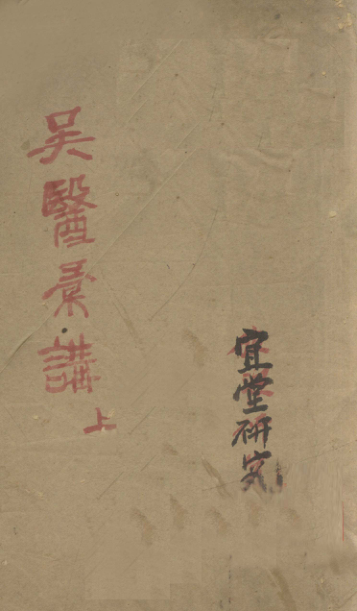 宜堂研究
吳醫彙講
上